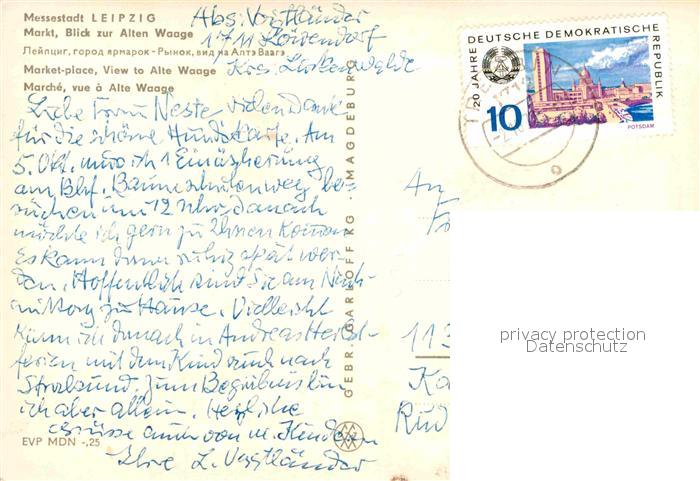 Messestadt LEIPZIG
Markt, Blick zur Alten Waage
Лейпциг, город ярмарок - Рынок, вид на Алтэ Ваагэ
Market-place, View to Alte Waage
Marché, vue à Alte Waage
Abs: Voigtländer
1711 Löwendorf
Krs. Luckenwalde
20 JAHRE DEUTSCHE DEMOKRATISCHE REPUBLIK
10
POTSDAM
Liebe Frau Neste, vielen Dank
für die schöne Hundekarte. Am
5. Okt. muß ich 1 Einäscherung
am Bhf. Baumschulenweg be-
suchen um 12 Uhr, danach
möchte ich gern zu Ihnen kommen
Es kann dann ruhig spät wer-
den. Hoffentlich sind Sie am Nach-
mittag zu Hause. Vielleicht
kann ich danach in Andreas Herbst-
ferien mit dem Kind auch nach
Stralsund. Zum Begräbnis bin
ich aber allein. Herzliche
Grüsse auch von m. Kindern
Ihre L. Voigtländer
An
113
Ka
Rud
GEBR. GARLOFF KG. · MAGDEBURG
EVP MDN -,25
privacy protection
Datenschutz